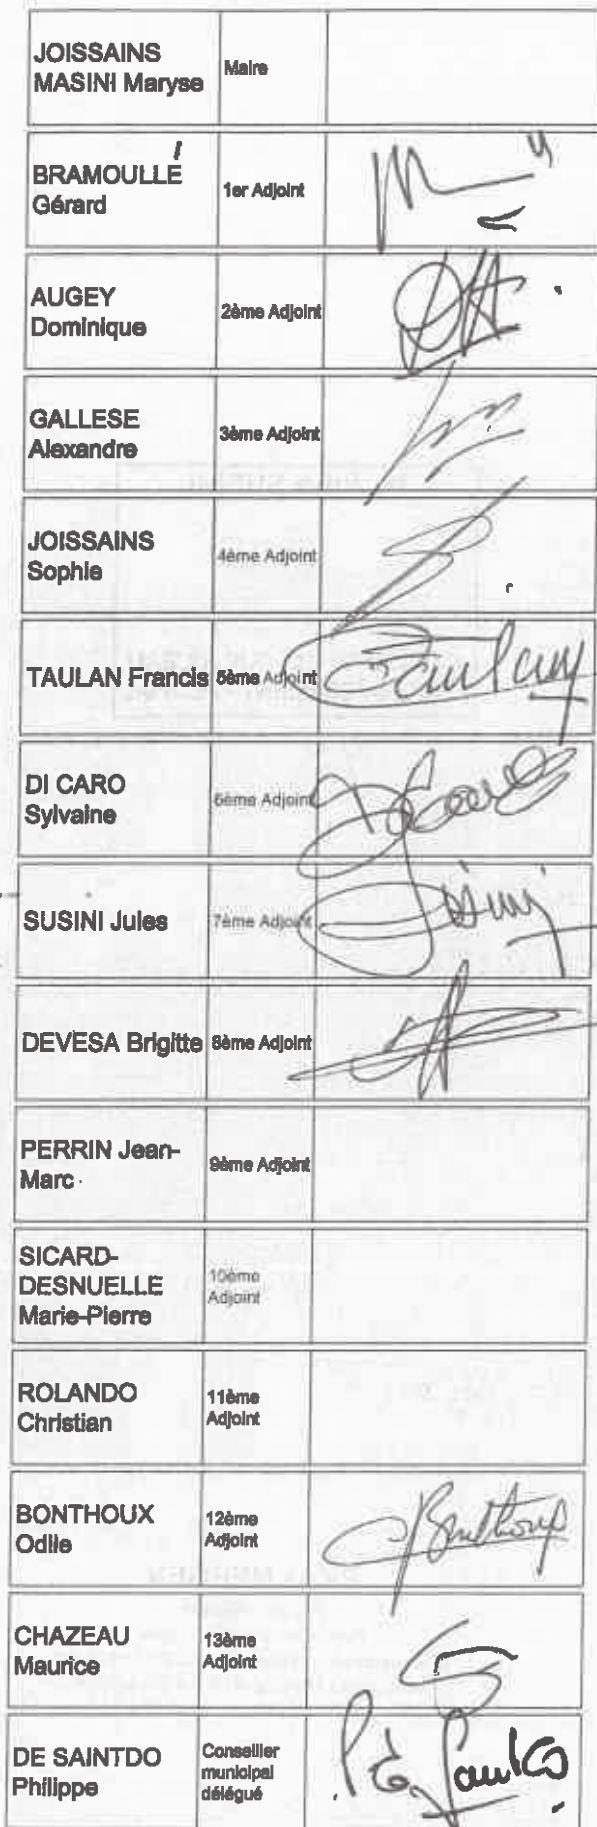 JOISSAINS
MASINI Maryse
Maire
BRAMOULLÉ
Gérard
1er Adjoint
AUGEY
Dominique
2ème Adjoint
GALLESE
Alexandre
3ème Adjoint
JOISSAINS
Sophie
4ème Adjoint
TAULAN Francis
5ème Adjoint
DI CARO
Sylvaine
6ème Adjoint
SUSINI Jules
7ème Adjoint
DEVESA Brigitte
8ème Adjoint
PERRIN Jean-
Marc
9ème Adjoint
SICARD-
DESNUELLE
Marie-Pierre
10ème
Adjoint
ROLANDO
Christian
11ème
Adjoint
BONTHOUX
Odile
12ème
Adjoint
Bonthoux
CHAZEAU
Maurice
13ème
Adjoint
DE SAINTDO
Philippe
Conseiller
municipal
délégué